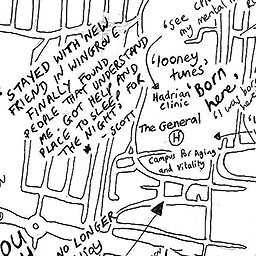 'STAYED WITH NEW
FRIEND IN WINGROVE
FINALLY FOUND
PEOPLE THAT UNDERSTAND
ME. GOT HELP AND
PLACE TO SLEEP FOR
THE NIGHT'
- SCOTT
'see
my mental
'looney
tunes'
Hadrian
Clinic
Born
here,
The General
H
Campus for Aging
and Vitality
YOU
NO LONGER